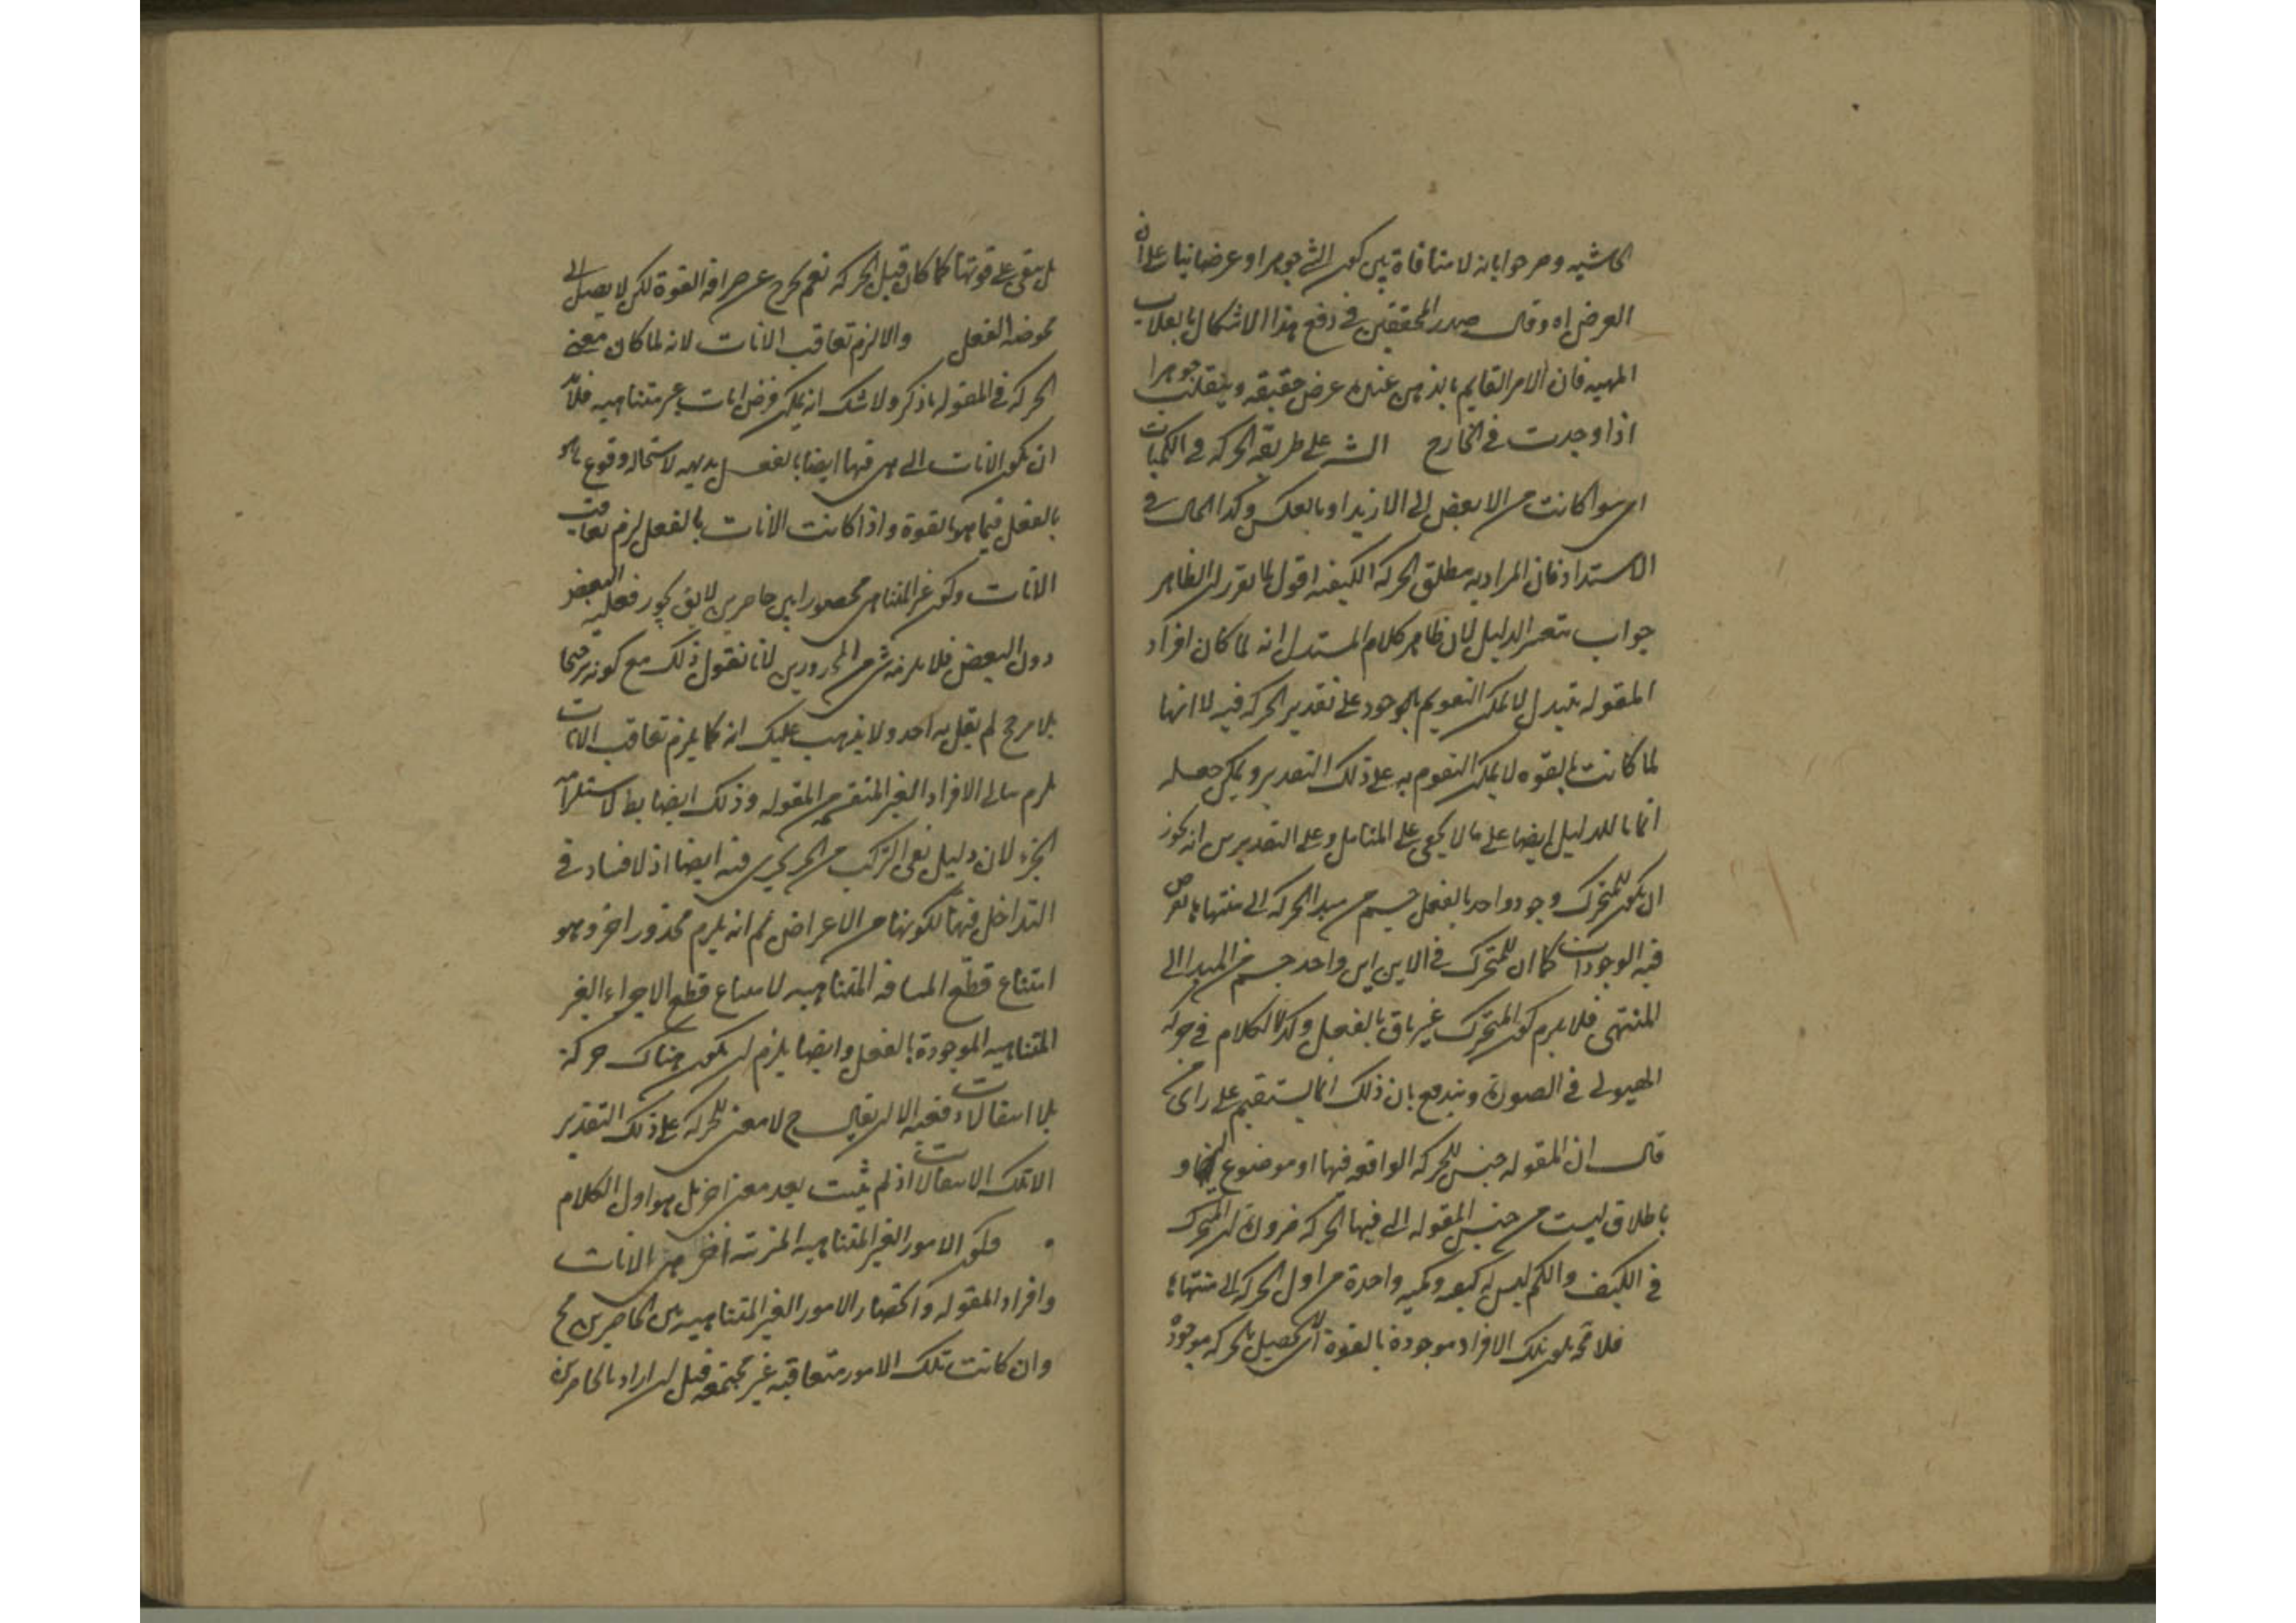 الحاشيه وصرحوا بانه لا منافاة بين كون الشئ جوهرا وعرضا بناء على ان
العرض اه وقال صدر المحققين في دفع هذا الاشكال بانقلاب
المهيه فان الامر القايم بالذهن عنده عرض حقيقه وينقلب جوهرا
اذا وجدت في الخارج الشر على طريقه الحركه في الكميات
اى سوا كانت من الانقص الى الازيد او بالعكس وكذا الحال في
الاستداد فان المراد به مطلق الحركه الكيفيه اقول لما تقرر ان الظاهر
جواب بتغير الدليل لان ظاهر كلام المستدل انه لما كان افراد
المقوله تتبدل لا يمكن التقويم بالوجود على تقدير الحركه فيه لا انها
لما كانت بالقوه لا يمكن التقوم به على ذلك التقدير ويمكن جعله
اتماما للدليل ايضا على ما لا يخفى على المتامل وعلى التقديرين انه يجوز
ان يكون للمتحرك وجود واحد بالفعل من مبدا الحركه الى منتهاها
فيه الوجودات كما ان للمتحرك في الاين اين واحد من المبدا الى
المنتهى فلا يلزم كون المتحرك غير باق بالفعل وكذا الكلام في حركه
الهيولى في الصورة ويندفع بان ذلك انما يستقيم على راى من
قال ان المقوله جنس للحركه الواقعه فيها او موضوع لها و
باطلاق ليست من جنس المقوله التى فيها الحركه ضرورة ان المتحرك
في الكيف والكم ليس له كيفيه وكميه واحدة من اول الحركه الى منتهاها
فلا تلك الافراد موجودة بالقوة اى تحصيل بالحركه موجودة
بل يبقى على قوتها كما كان قبل الحركه نعم يخرج عن صرافه القوة لكن لا يصل الى
محوضه الفعل والا لزم تعاقب الانات لانه لما كان معنى
الحركه في المقوله ما ذكر ولا شك انه يمكن فرض انات غير متناهيه فلا بد
ان يكون الانات التى هى فيها ايضا بالفعل بديهيه لاستحاله وقوع ما هو
بالفعل فيما هو بالقوة واذا كانت الانات بالفعل لزم تعاقب
الانات وكون غير المتناهى محصورا بين حاصرين لا يقال يجوز فعليه البعض
دون البعض فلا يلزم شئ من المحذورين لانا نقول ذلك مع كونه ترجيحا
بلا مرجح لم يقل به احد ولا يذهب عليك انه كما يلزم تعاقب الانات
يلزم تتالى الافراد الغير المنقسم من المقوله وذلك ايضا بط لاستلزامه
الجزء لان دليل نفى التركب من الجزء يجرى فيه ايضا اذ لا فساد في
التداخل فيها لكونها من الاعراض ثم انه يلزم محذور اخر وهو
امتناع قطع المسافه المتناهيه لامتناع قطع الاجزاء الغير
المتناهيه الموجودة بالفعل وايضا يلزم ان يكون هناك حركة
بلا انتقالات دفعيه الا ان يقال ح لا معنى للحركه على ذلك التقدير
الا تلك الانتقالات اذ لم يثبت بعد معنى اخر بل هو اول الكلام
فيكون الامور الغير المتناهيه المترتبه اعنى الانات
وافراد المقوله وانحصار الامور الغير المتناهيه بين الحاصرين مح
وان كانت تلك الامور متعاقبه غير مجتمعه قيل ان اراد بالحاصرين